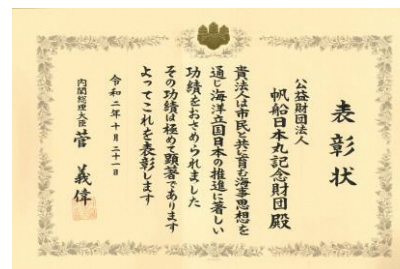 表彰状
公益財団法人
帆船日本丸記念財団殿
貴法人は市民と共に育む海事思想を
通じ海洋立国日本の推進に著しい
功績をおさめられました
その功績は極めて顕著であります
よってこれを表彰します
令和二年十月二十一日
内閣総理大臣 菅 義偉